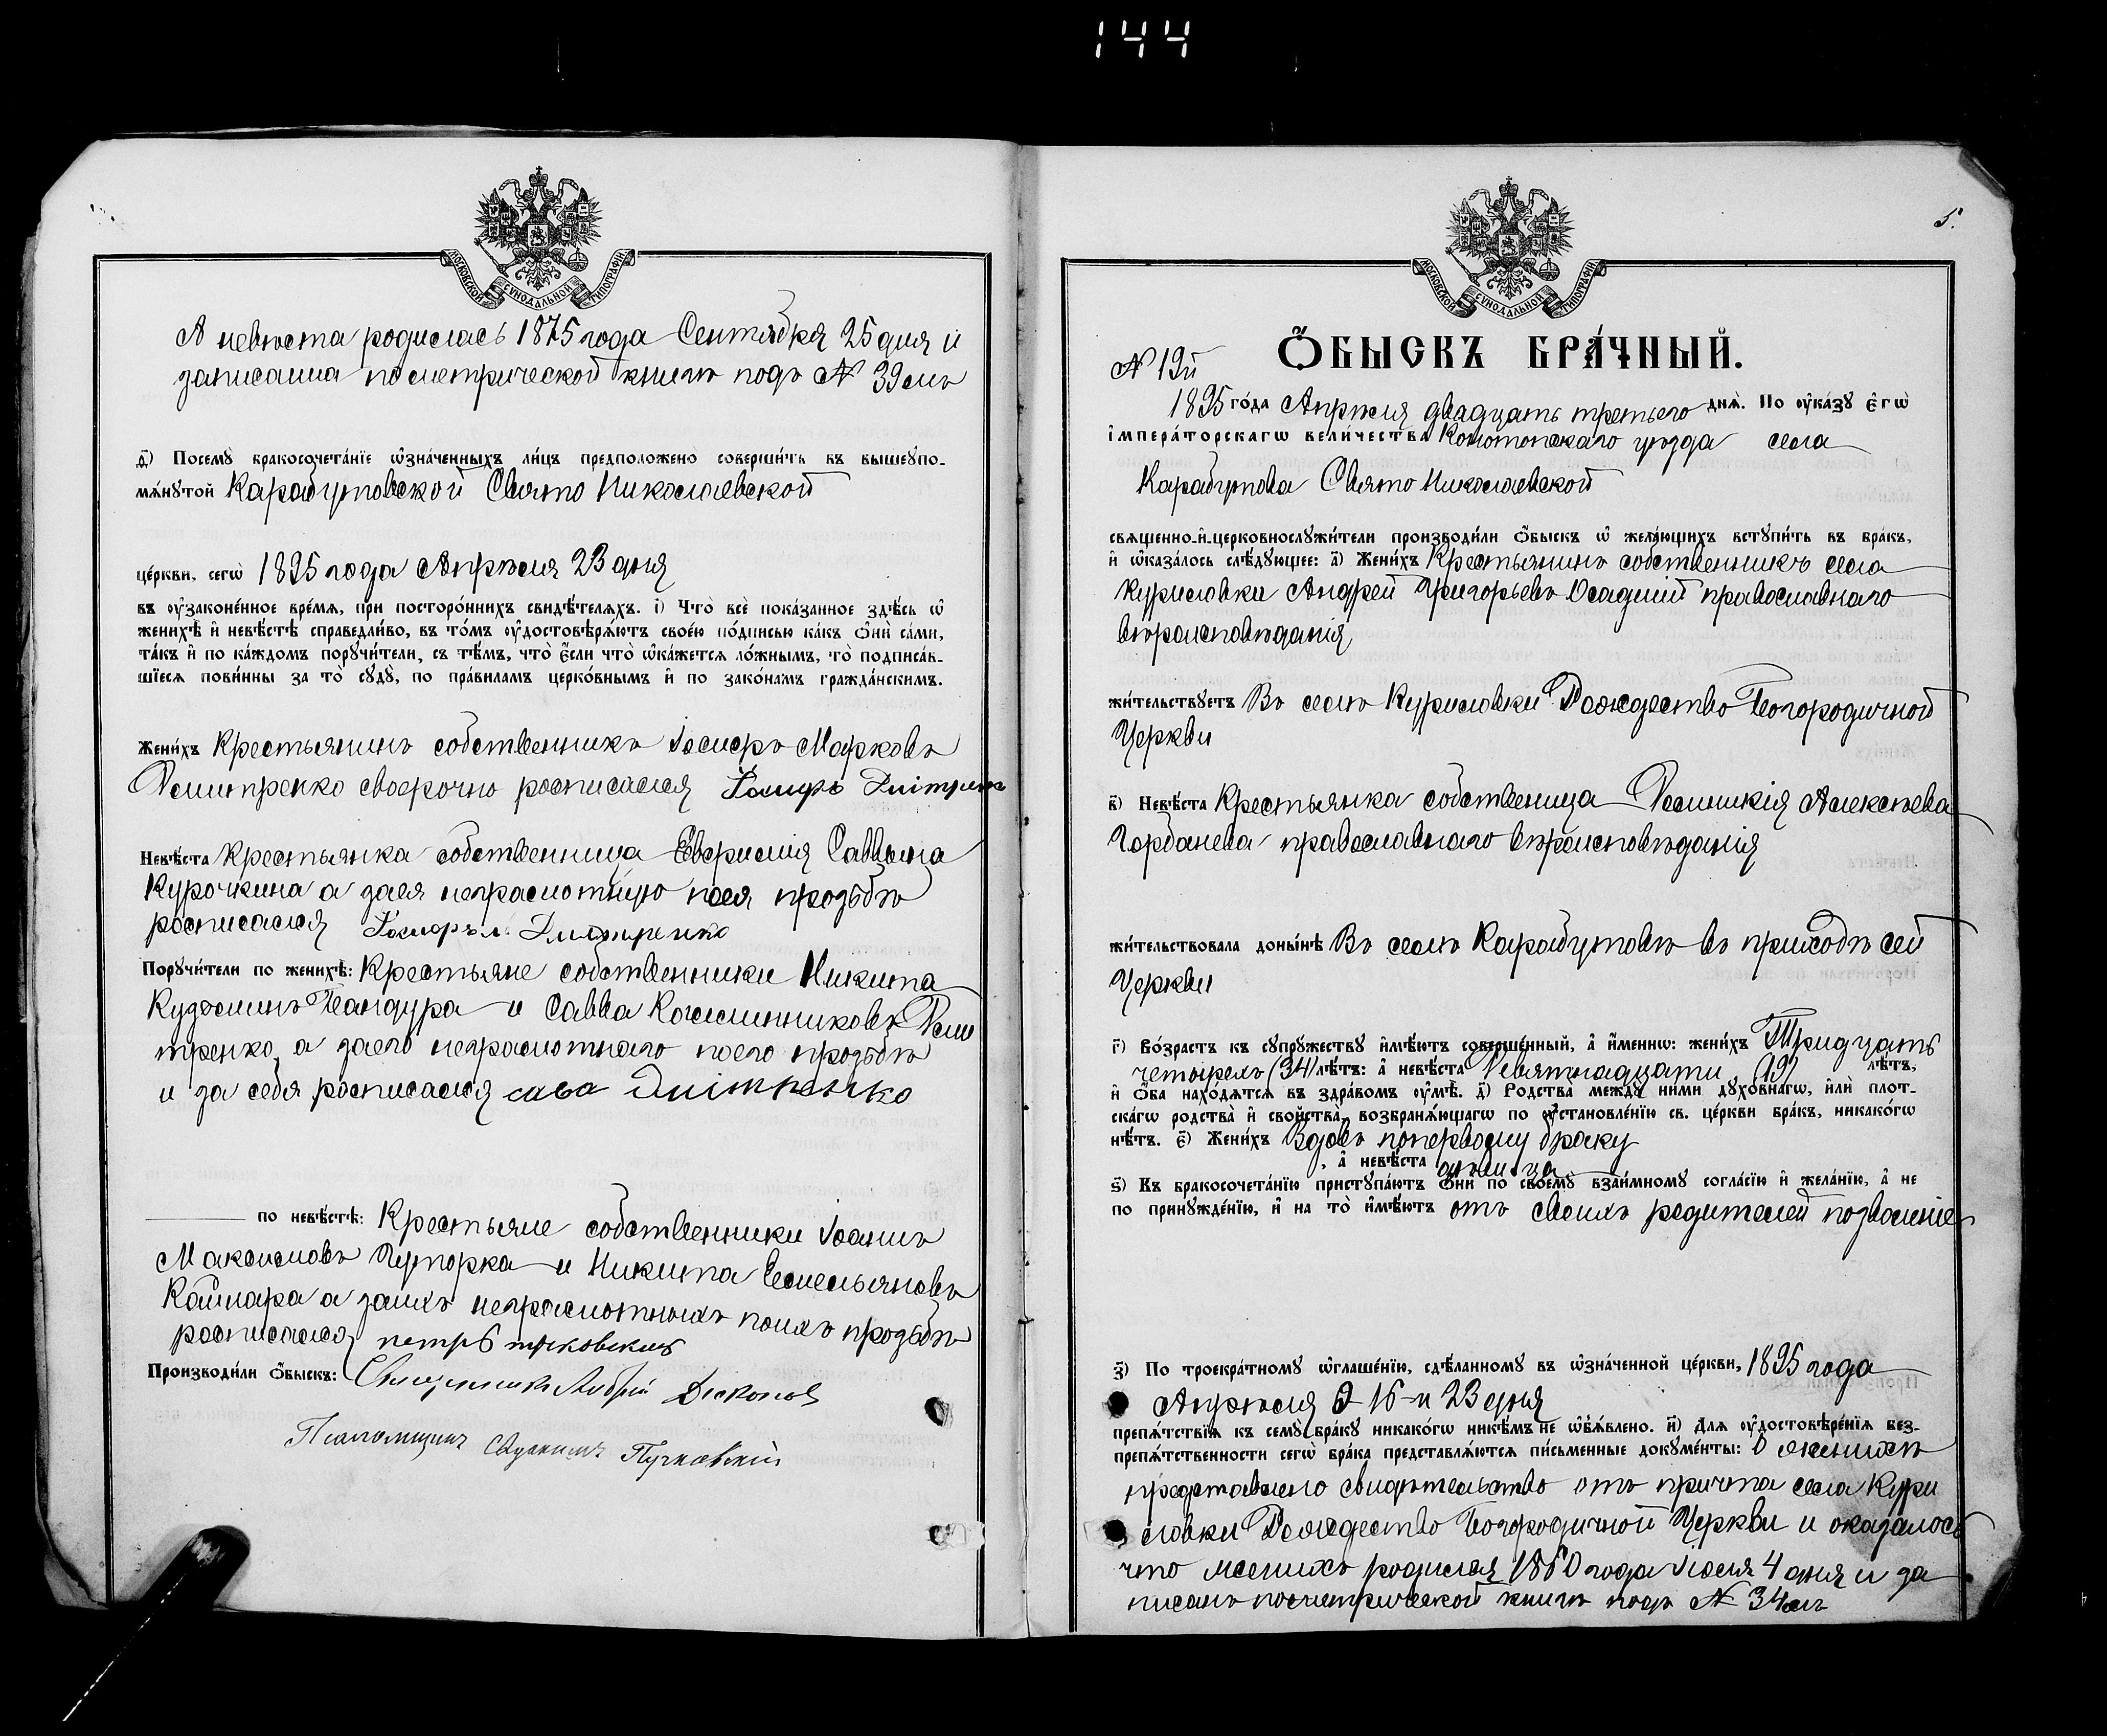 144
МОСКОВСКОЙ СѴНОДАЛЬНОЙ ТИПОГРАФІИ
А невѣста родилась 1875 года Сентября 25 дня и
записанна по метрической книгѣ подъ № 39мъ
д҃) Посемꙋ бракосочета́нїе ѡ҆зна́ченныхъ ли́цъ предположено̀ соверши́ть въ вышеꙋпо-
мѧ́нꙋтой Карабутовской Свято Николаевской
це́ркви, сегѡ̀ 1895 года Апрѣля 23 дня
въ ᲂу҆законе́нное вре́мѧ, при посторо́ннихъ свидѣ́телѧхъ. і҃) Что̀ всѐ пока́занное здѣ́сь ѡ҆
женихѣ̀ и҆ невѣ́стѣ справедли́во, въ то́мъ ᲂу҆достовѣрѧ́ютъ свое́ю по́дписью ка́къ ѻ҆нѝ са́ми,
та́къ и҆ по ка́ждомъ порꙋчи́тели, съ тѣ́мъ, что̀ є҆́сли что̀ ѡ҆ка́жетсѧ ло́жнымъ, то̀ подписа́в-
шїесѧ пови́нны за то̀ сꙋдꙋ̀, по пра́виламъ церко́внымъ и҆ по зако́намъ гражда́нскимъ.
Жени́хъ Крестьянинъ собственникъ Іосифъ Марковъ
Дмитренко своерочно росписался Іосифъ Дмітренко
Невѣ́ста Крестьянка собственница Евфимія Саввына
Курочкина а заея неграмотную поея прозьбѣ
росписался Іосифъ м. Дмитренко
Порꙋчи́тели по женихѣ̀: Крестьяне собственники Никита
Кузьминъ Бандура и Савва Калинниковъ Дми
тренко, а заего неграмотнаго поего прозьбѣ
и за себя росписался сава Дмітренко
по невѣ́стѣ: Крестьяне собственники Іоаннъ
Максимовъ Чуторка и Никита Емельяновъ
Кайнара а заихъ неграмотныхъ поихъ прозьбѣ
росписался петръ
Производи́ли ѻ҆́быскъ: Священникъ Андрій Діаконовъ
Псаломщикъ Пучковскій
5.
МОСКОВСКОЙ СѴНОДАЛЬНОЙ ТИПОГРАФІИ
Ѻ҆́БЫСКЪ БРА́ЧНЫЙ.
№ 19й
1895 го́да Апрѣля двадцать третьего днѧ̀. По ᲂу҆ка́зꙋ є҆гѡ̀
і҆мпера́торскагѡ вели́чества Конотопскаго уѣзда села
Карабутова Свято Николаевской
свѧще́нно-и҆-церковнослꙋжи́тели производи́ли ѻ҆́быскъ ѡ҆ жела́ющихъ встꙋпи́ть въ бра́къ,
и҆ ѡ҆каза́лось слѣ́дꙋющее: а҃) Жени́хъ Крестьянинъ собственникъ села
Куриловки Андрей Григорьевъ Осадчій православнаго
вѣроисповѣданія
жи́тельствꙋетъ Въ селѣ Куриловки Рождество Богородичной
Церкви
в҃) Невѣ́ста Крестьянка собственница Гликікія Алексѣева
Горбанева православнаго вѣроисповѣданія
жи́тельствовала доны́нѣ Въ селѣ Карабутовѣ въ приходѣ сей
Церкви
г҃) Во́зрастъ къ сꙋпрꙋ́жествꙋ и҆мѣ́ютъ соверше́нный, а҆ и҆́меннѡ: жени́хъ Тридцать
четырехъ (34) лѣ́тъ: а҆ невѣ́ста Девятнадцати (19) лѣ́тъ,
и҆ ѻ҆́ба нахо́дѧтсѧ въ здра́вомъ ᲂу҆мѣ̀. д҃) Родства̀ междꙋ̀ ни́ми дꙋхо́внагѡ, и҆лѝ пло́т-
скагѡ родства̀ и҆ свойства̀, возбранѧ́ющагѡ по ᲂу҆становле́нїю св. це́ркви бра́къ, никако́гѡ
нѣ́тъ. є҃) Жени́хъ Вдовъ поперволу браку
, а҆ невѣ́ста дѣвица
ѕ҃) Къ бракосочета́нїю пристꙋпа́ютъ ѻ҆нѝ по своемꙋ̀ взаи́мномꙋ согла́сїю и҆ жела́нїю, а҆ не
по принꙋжде́нїю, и҆ на то̀ и҆мѣ́ютъ отъ своихъ родителей позволеніе
з҃) По троекра́тномꙋ ѡ҆глаше́нїю, сдѣ́ланномꙋ въ ѡ҆зна́ченной це́ркви, 1895 года
Апрѣля 9 16 и 23 дня
препѧ́тствїѧ къ семꙋ̀ бра́кꙋ никако́гѡ никѣ́мъ не ѡ҆б̾ѧ́влено. и҃) Длѧ ᲂу҆достовѣре́нїѧ без-
препѧ́тственности сегѡ̀ бра́ка представлѧ́ютсѧ пи́сьменные докꙋме́нты: О женихѣ
представлено свидѣтельство отъ причта села Кури
ловки Рождество Богородичной Церкви и оказалось
что женихъ родился 1860 года Іюля 4 дня и за
писанъ пометрической книгѣ подъ № 34мъ